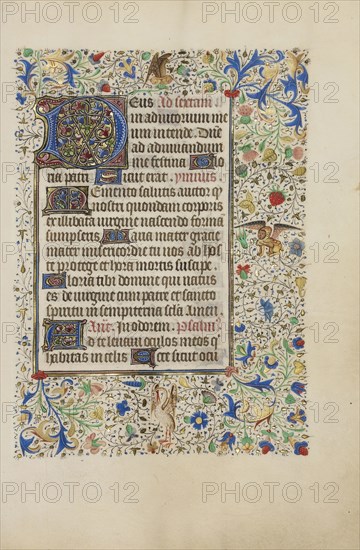 Deus Ad sextam
in adiutorium me
um intende. Dne
ad adiuvandum
me festina Glo
ria patri Sicut erat. ymnus
Memento salutis auctor q
nostri quondam corporis
ex illibata virgine nascendo forma
sumpseris. Maria mater gracie
mater misericordie tu nos ab host
protege et hora mortis suscipe.
Gloria tibi domine qui natus
es de virgine cum patre et sancto
spiritu in sempiterna scla Amen
Ant. In odorem. psalm
Ad te levavi oculos meos q
habitas in celis Ecce sicut ocu
PHOTO 12